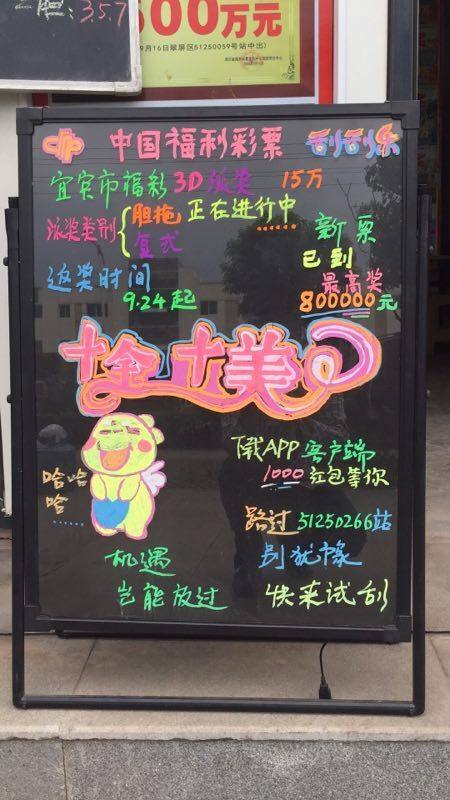 胆: 35.7
600万元
9月16日翠屏区51250059号站中出
中国福利彩票 刮刮乐
宜宾市福彩3D派奖 15万
派奖类别{胆拖 正在进行中......
复式
返奖时间
9.24起
新票
已到
最高奖
800000元
十全十美
哈哈
哈......
下载APP客户端
1000红包等你
路过51250266站
机遇
岂能放过
别犹豫
快来试刮